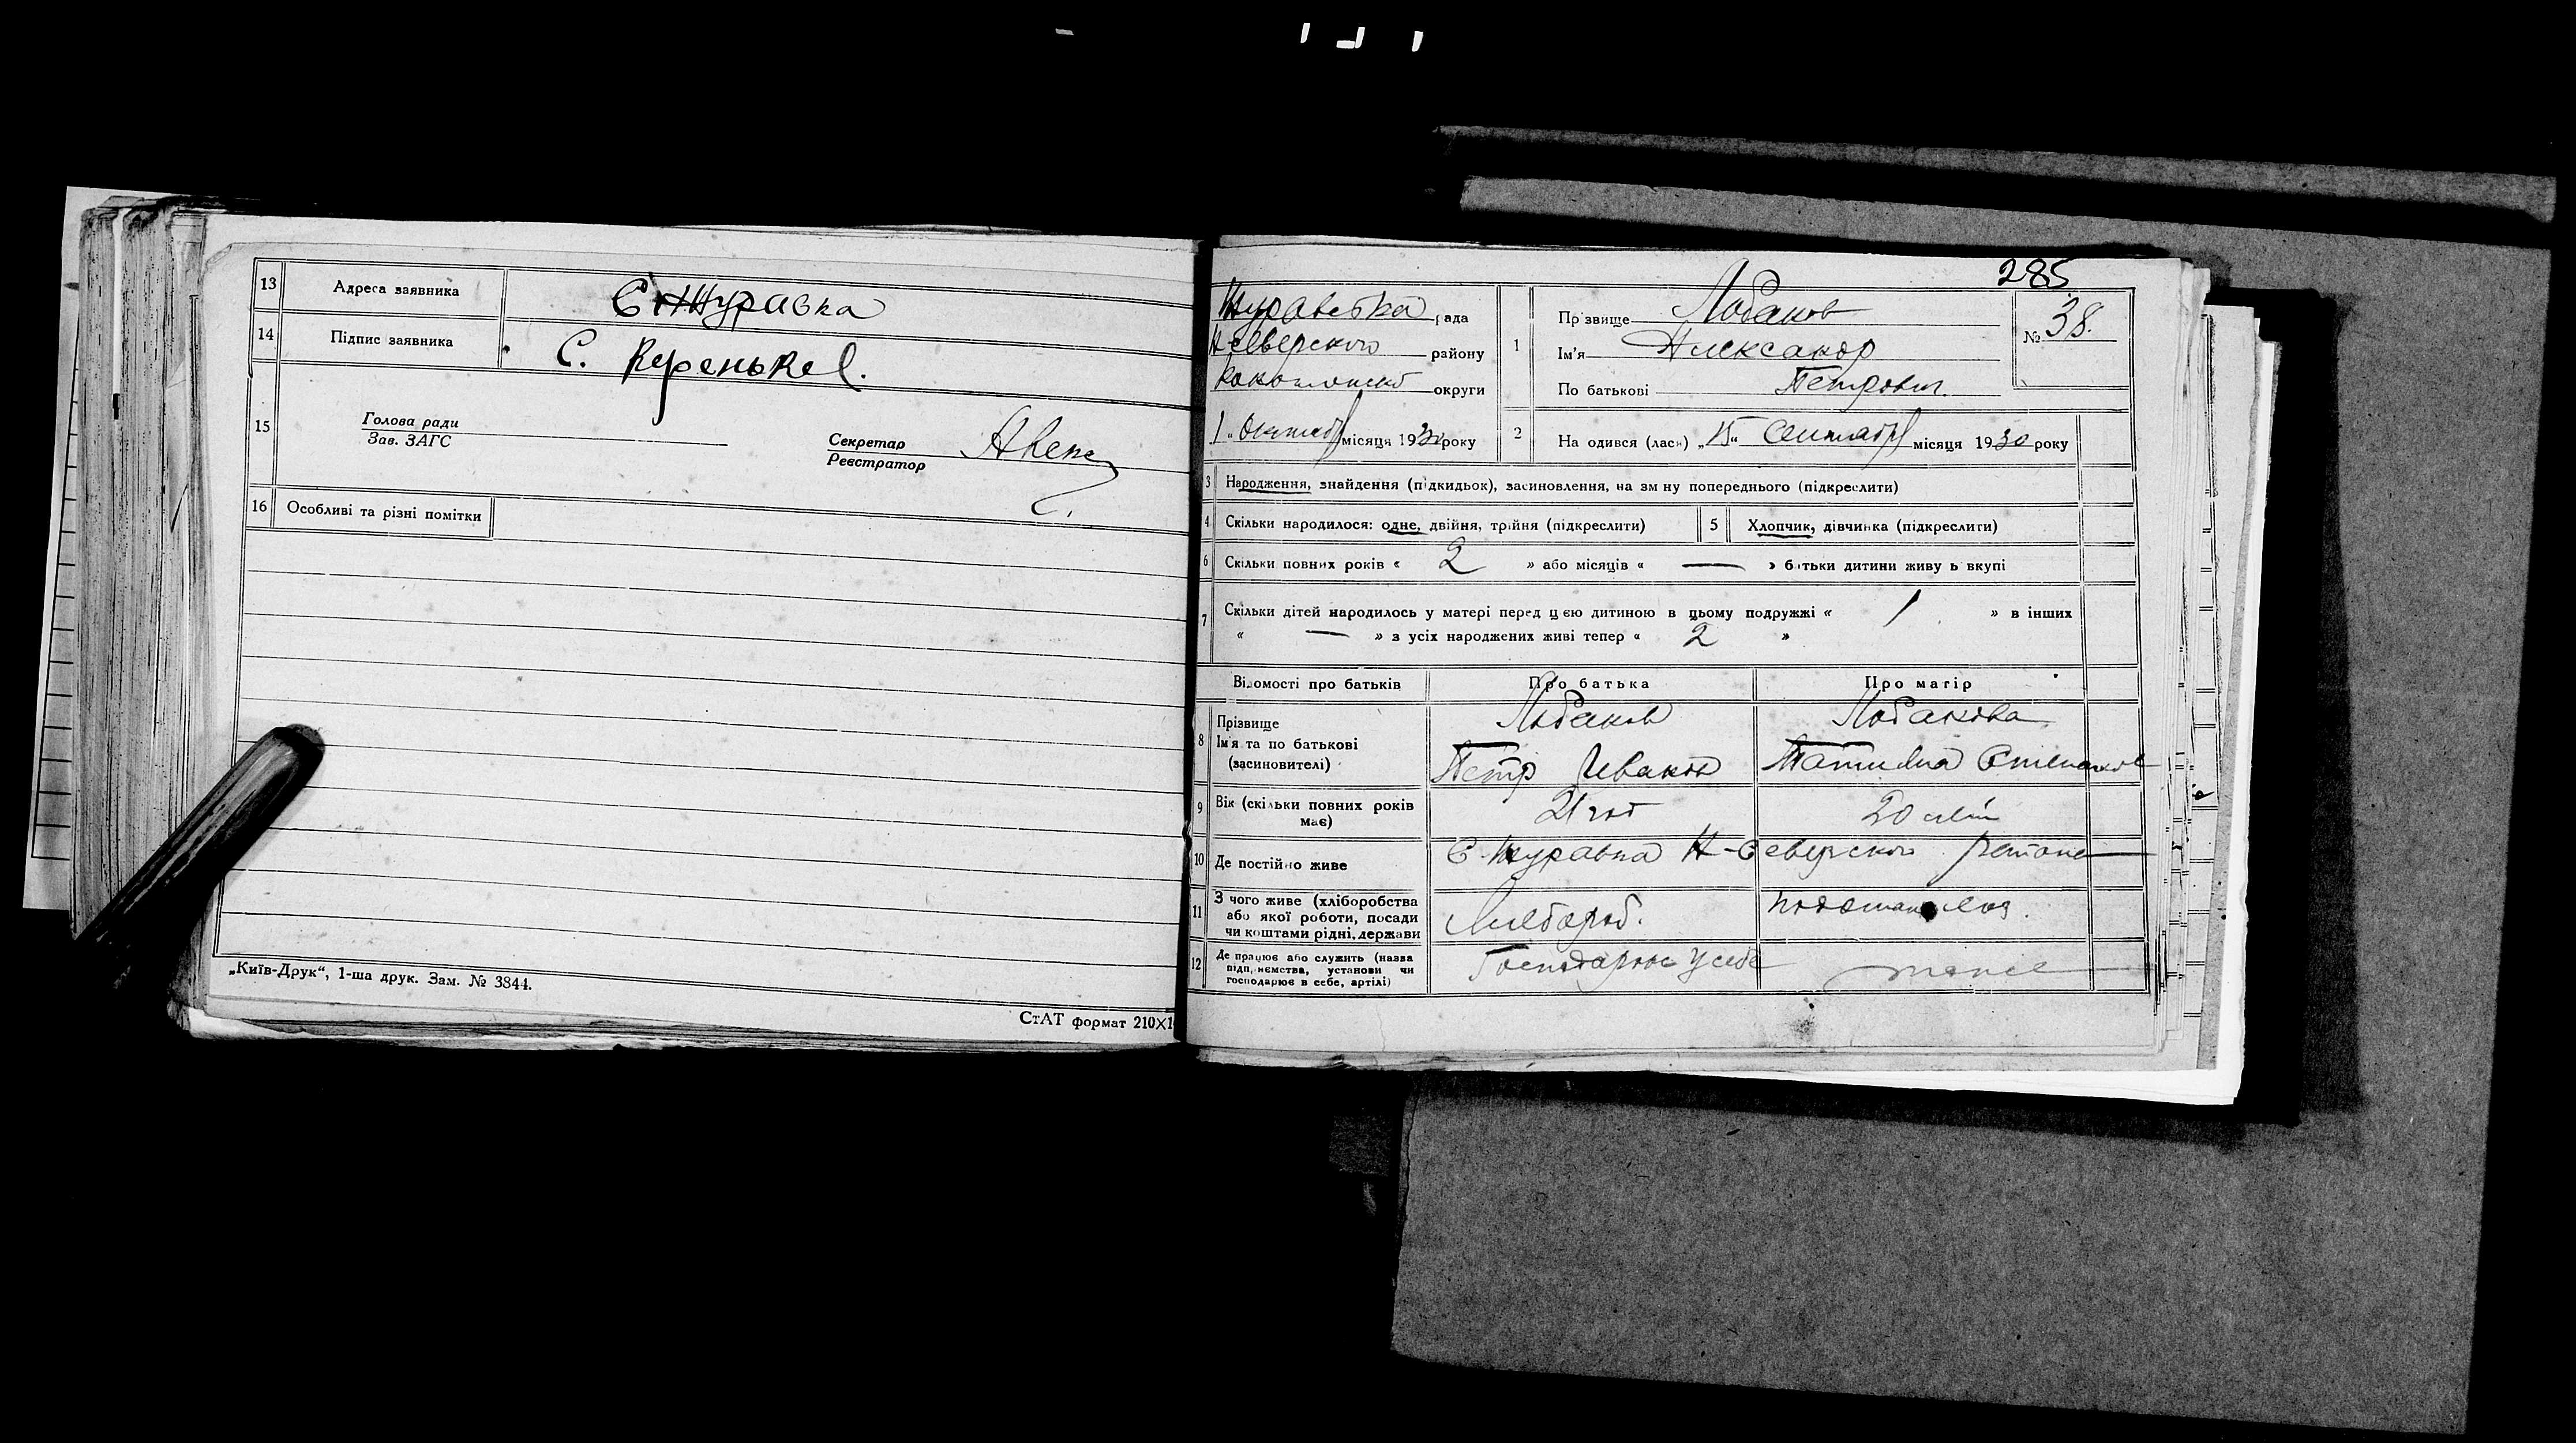 13 Адреса заявника С Журавка
14 Підпис заявника С.
15 Голова ради
Зав. ЗАГС
Секретар
Реєстратор
16 Особливі та різні помітки
„Київ-Друк“, 1-ша друк. Зам. № 3844.
СтАТ формат 210X1
285
рада
Н-Северского району
округи
1 Прізвище Лобанов
Ім'я Александр
По батькові Петрович.
№ 38.
1 „ Октября місяця 1930 року
2 На одився (лась) „15“ Сентября місяця 1930 року
3 Народження, знайдення (підкидьок), засиновлення, на зм ну попереднього (підкреслити)
4 Скільки народилося: одне, двійня, трійня (підкреслити)
5 Хлопчик, дівчинка (підкреслити)
6 Скільки повних років « 2 » або місяців « — » батьки дитини живу ь вкупі
7 Скільки дітей народилось у матері перед цією дитиною в цьому подружжі « 1 » в інших
« — » з усіх народжених живі тепер « 2 »
Відомості про батьків Про батька Про матір
8 Прізвище Лобанов Лобанова
Ім'я та по батькові
(засиновителі) Петр Иванов Татияна Степанов
9 Вік (скільки повних років
має) 21 год 20 лет
10 Де постійно живе С-Журавка Н-Северского
11 З чого живе (хліборобства
або якої роботи, посади
чи коштами рідні, держави Хлебороб.
12 Де працює або служить (назва
підприємства, установи чи
господарює в себе, артілі) Господарює у себе тоже